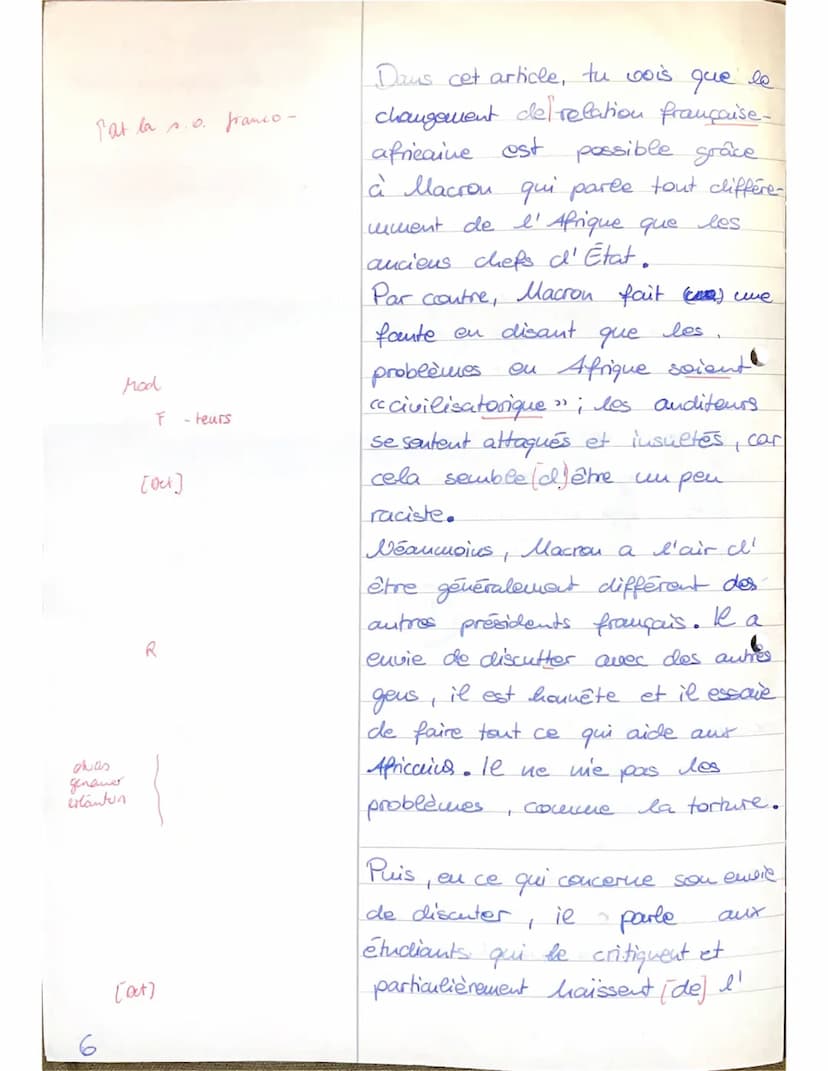 Dans cet article, tu vois que le
Art la s.o. franco-
changement de relation française-
africaine est possible grâce
à Macron qui parle tout différe-
mment de l'Afrique que les
anciens chefs d'État.
Par contre, Macron fait une
faute en disant que les
problèmes en Afrique soient
Mod
«civilisatorique»; les auditeurs
F -teurs
se sentent attaqués et insultés, car
cela semble [d']être un peu
[Det]
raciste.
Néanmoins, Macron a l'air d'
être généralement différent des
autres présidents français. Il a
envie de discutter avec des autres
R
gens, il est honnête et il essaie
de faire tout ce qui aide aux
Africcains. Il ne nie pas les
etwas
genauer
erläutern
problèmes, comme la torture.
Puis, en ce qui concerne son envie
de discuter, il parle aux
étudiants qui le critiquent et
particulièrement haïssent [de] l'
[Det]
6